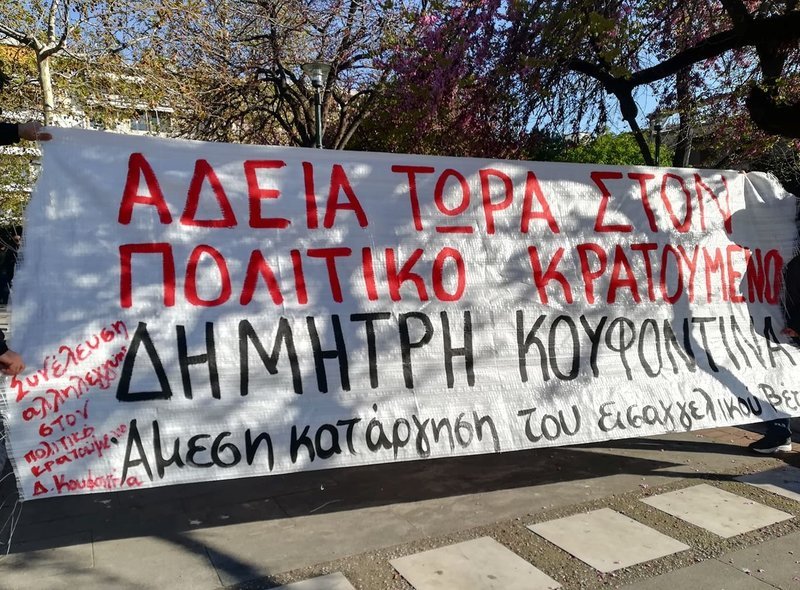 ΑΔΕΙΑ ΤΩΡΑ ΣΤΟΝ
ΠΟΛΙΤΙΚΟ ΚΡΑΤΟΥΜΕΝΟ
ΔΗΜΗΤΡΗ ΚΟΥΦΟΝΤΙΝΑ
Αμεση κατάργηση του εισαγγελικού Βέτ
Συνέλευση
αλληλεγγύης
στον
πολιτικό
κρατούμενο
Δ. Κουφοντίνα